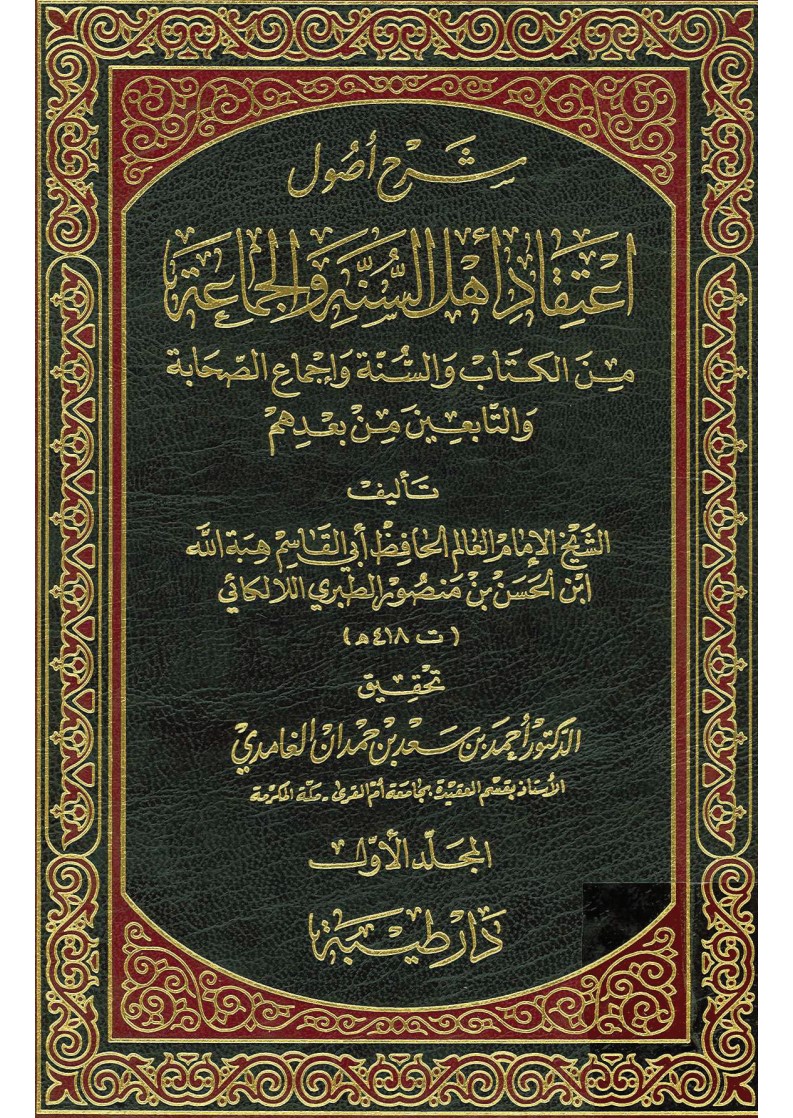 شرح أصول
اعتقاد أهل السنة والجماعة
من الكتاب والسنة وإجماع الصحابة
والتابعين من بعدهم
تأليف
الشيخ الإمام العالم الحافظ أبي القاسم هبة الله
ابن الحسن بن منصور الطبري اللالكائي
(ت ٤١٨ هـ)
تحقيق
الدكتور أحمد بن سعد بن حمدان الغامدي
الأستاذ بقسم العقيدة بجامعة أم القرى - مكة المكرمة
المجلد الأول
دار طيبة